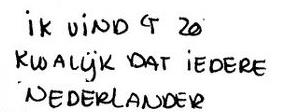 iK VIND 't ZO
KWALIJK DAT iEDERE
NEDERLANDER